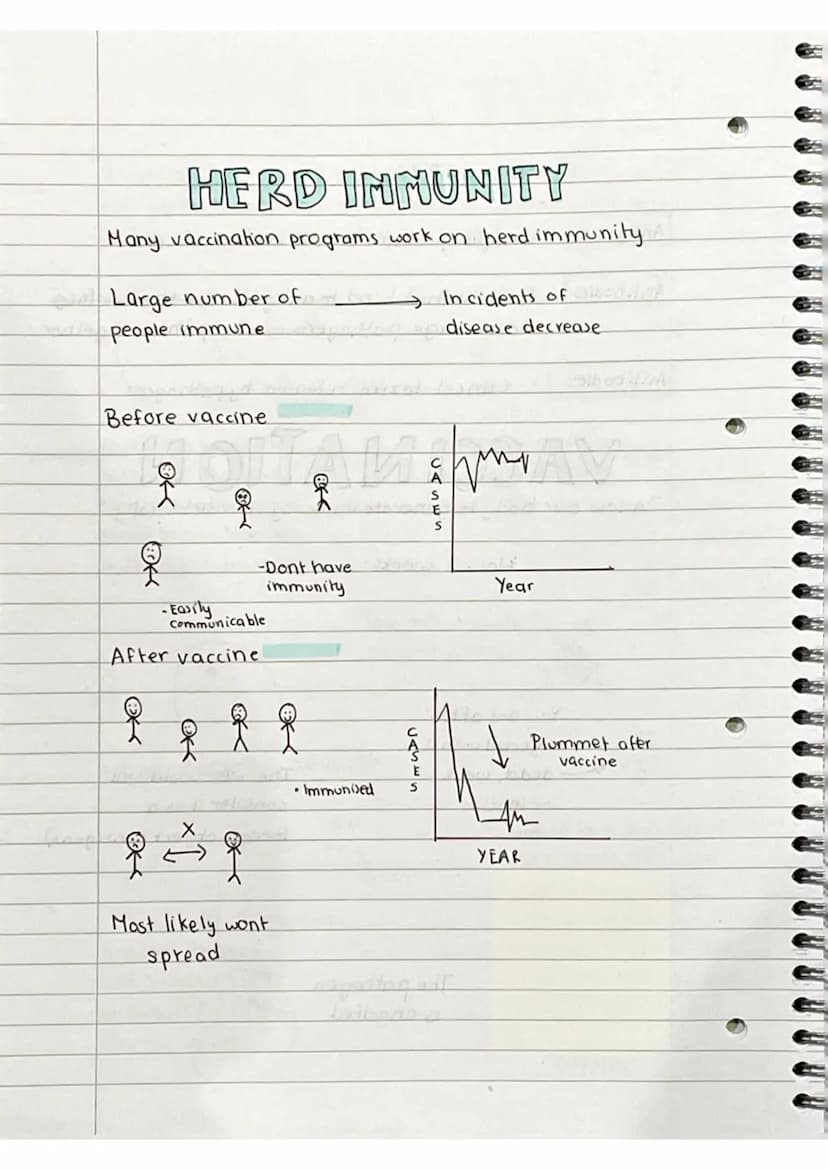 HERD IMMUNITY
Many vaccination programs work on herd immunity
Large number of → Incidents of
people immune disease decrease
Before vaccine
CASES
-Dont have
immunity
Year
- Easily
communicable
After vaccine
CASES
Plummet after
vaccine
• Immunised
X
YEAR
Most likely wont
spread